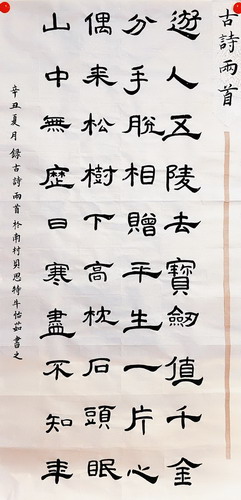 古詩兩首
遊人五陵去寶劒值千金
分手脫相贈平生一片心
偶来松樹下高枕石頭眠
山中無歷日寒盡不知年
辛丑夏月錄古詩兩首於南村貝思特牛怡茹書之